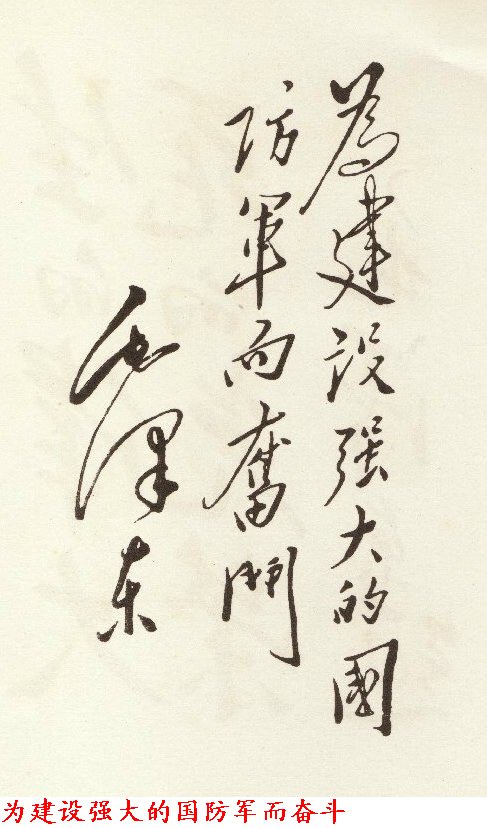 為建設强大的國
防軍而奮鬥
毛泽东
为建设强大的国防军而奋斗